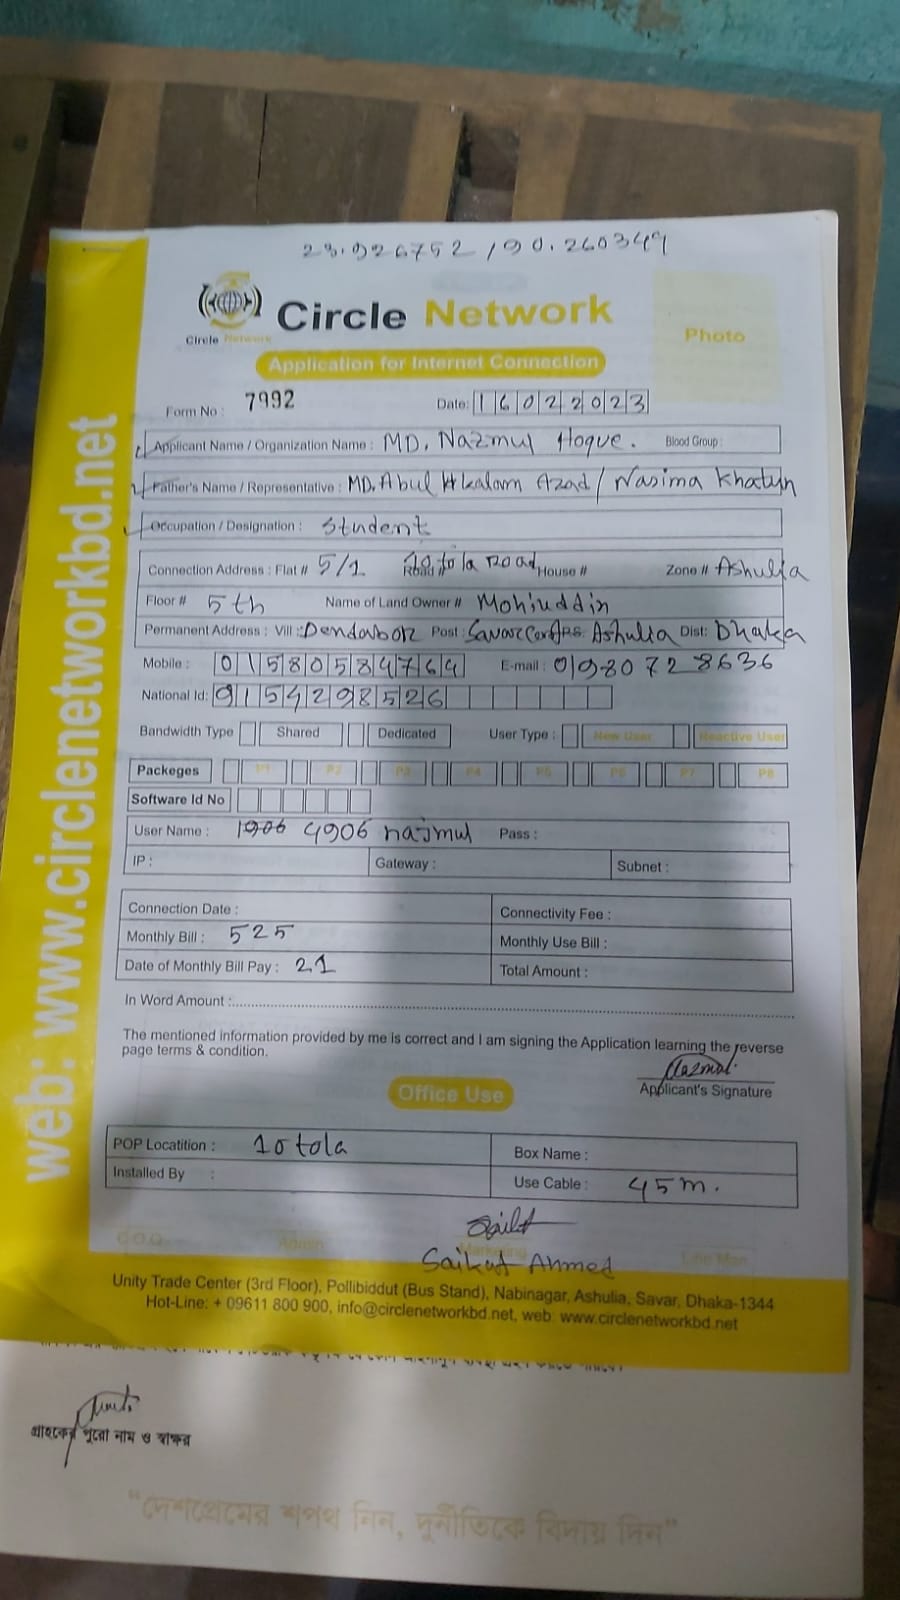 23.926752 /90.260349
Circle Network
Circle Network
Photo
Application for Internet Connection
Form No : 7992 Date: 16022023
Applicant Name / Organization Name : MD. Nazmul Hoque. Blood Group :
Father's Name / Representative : MD. Abul Kalam Azad / Nasima Khatun
Occupation / Designation : Student
Connection Address : Flat # 5/1 Road # 10 tola Road House # Zone # Ashulia
Floor # 5th Name of Land Owner # Mohiuddin
Permanent Address : Vill : Dendabor Post : Savar Cant P.S. Ashulia Dist: Dhaka
Mobile : 01580584764 E-mail : 01980728636
National Id: 9154298526
Bandwidth Type Shared Dedicated User Type : New User Reactive User
Packeges P1 P2 P3 P4 P5 P6 P7 P8
Software Id No
User Name : 4906 najmul Pass :
IP : Gateway : Subnet :
Connection Date : Connectivity Fee :
Monthly Bill : 525 Monthly Use Bill :
Date of Monthly Bill Pay : 21 Total Amount :
In Word Amount :
The mentioned information provided by me is correct and I am signing the Application learning the reverse
page terms & condition.
Nazmul
Applicant's Signature
Office Use
POP Locatition : 10 tola Box Name :
Installed By : Use Cable : 45m.
C.O.O Admin Marketing Line Man
Saikat Ahmed
Unity Trade Center (3rd Floor), Pollibiddut (Bus Stand), Nabinagar, Ashulia, Savar, Dhaka-1344
Hot-Line: + 09611 800 900, info@circlenetworkbd.net, web: www.circlenetworkbd.net
web: www.circlenetworkbd.net
গ্রাহকের পুরো নাম ও স্বাক্ষর
“দেশপ্রেমের শপথ নিন, দুর্নীতিকে বিদায় দিন”